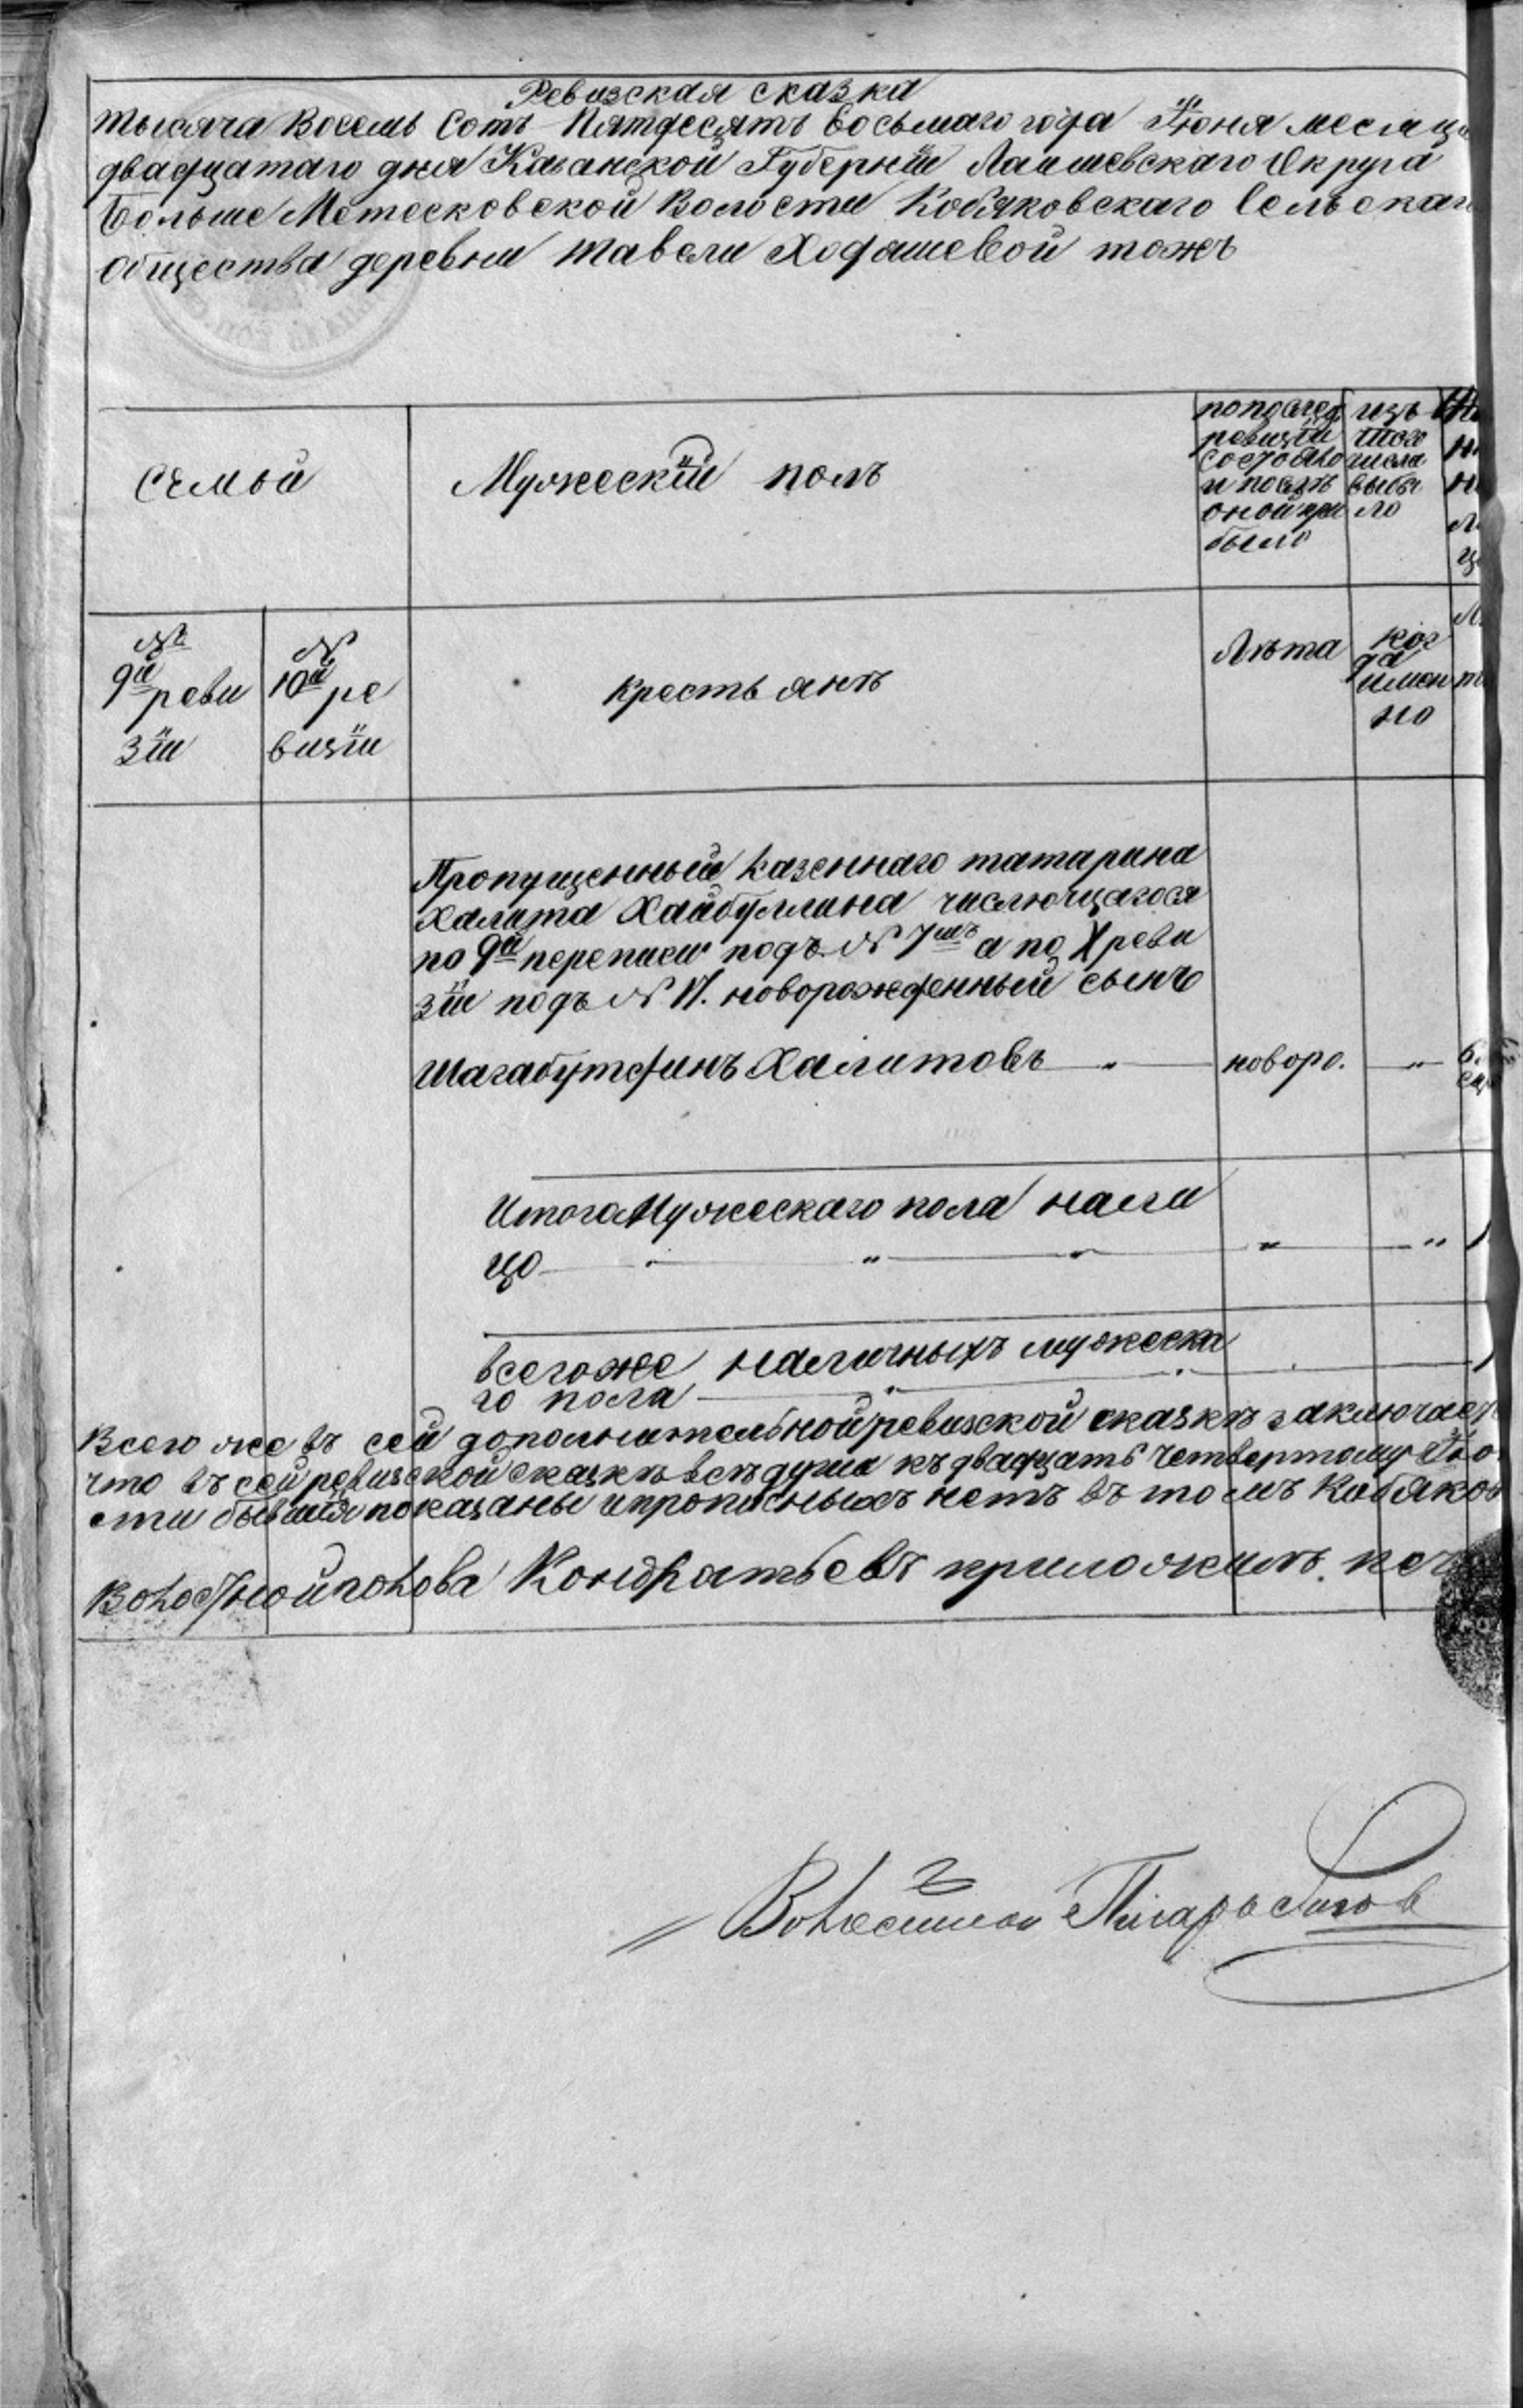 Ревизская сказка
тысяча Восемь Сотъ Пятдесятъ Восьмаго года Іюня месяца
двадцатаго дня Казанской Губерніи Лаишевскаго Округа
Больше Метесковской Волости Кобяковскаго Сельскаг
Общества деревни Тавели Ходяшевой тожъ
Семьи
Мужескій полъ
по послед
ревизіи
состояло
и послѣ
оной при
было
изъ
того
числа
выбы
ло
№
9й реви
зіи
№
10й ре
визіи
крестьянъ
Лѣта
ког
да
имен
но
Пропущенный казеннаго татарина
Халита Хайбуллина числющагося
по 9й переписи подъ № 7мъ а по X реви
зіи подъ № 17. новорожденный сынъ
Шагабутдинъ Халитовъ — " — новоро. — " —
Итого Мужескаго пола нали
цо — " — " — " — " — " 1
всего же наличныхъ мужеска
го пола — " — " — 1
Всего же въ сей дополнительной ревизской сказкѣ заключает
что въ сей ревизской сказкѣ всѣ души къ двадцать четвертому
сти бывшія показаны и прописныхъ нетъ въ томъ Кобяков
Волостной голова Кондратьевъ приложилъ печ
Волостной Писарь